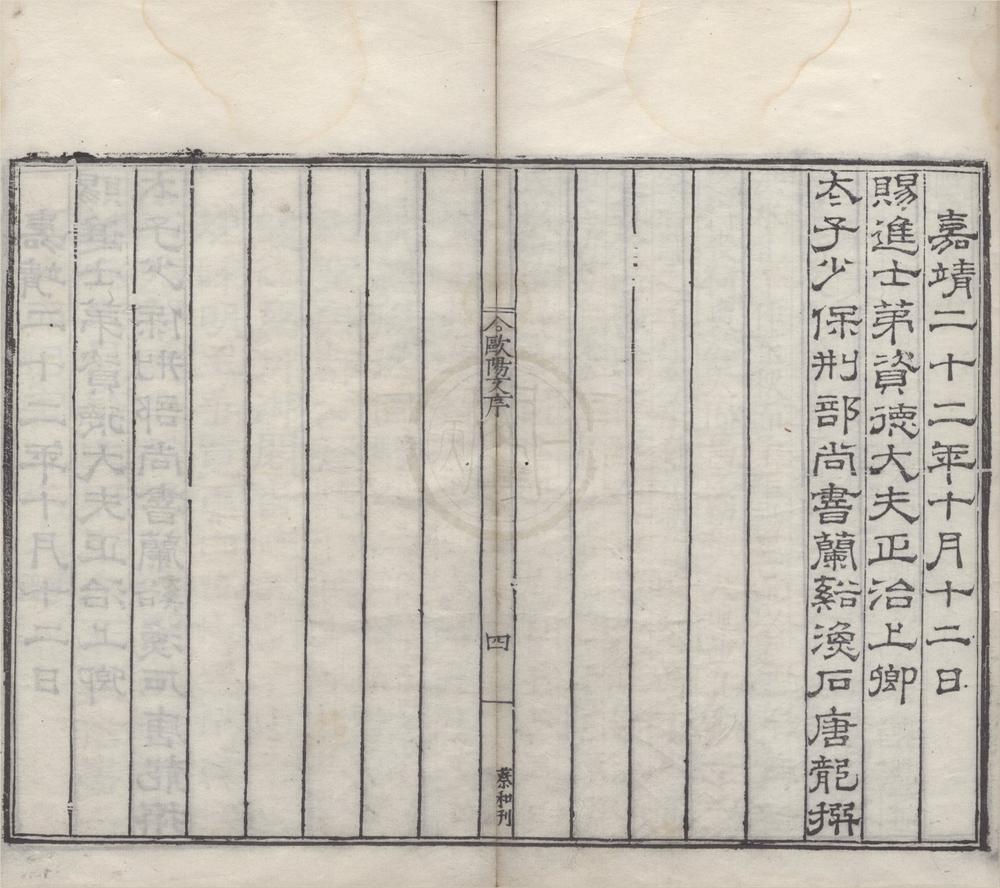 嘉靖二十二年十月十二日
賜進士第資德大夫正治上卿
太子少保刑部尚書蘭谿漁石唐龍撰
歐陽文序
四
蔡和刊